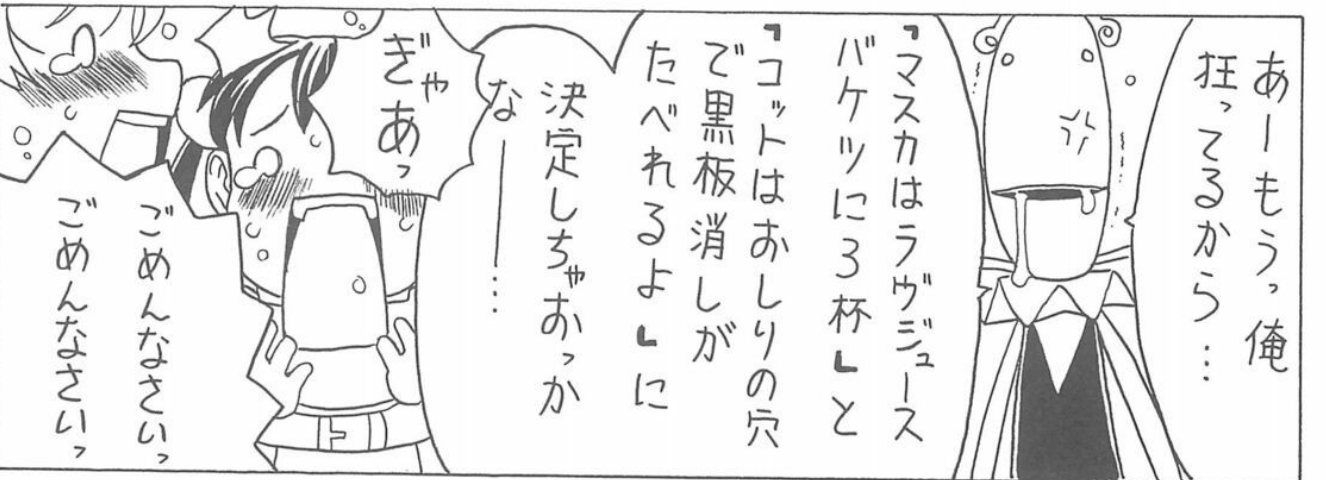 あーもうっ俺
狂ってるから…
『マスカはラヴジュース
バケツに3杯』と
『コットはおしりの穴
で黒板消しが
たべれるよ』に
決定しちゃおっか
な――…
ぎゃあっ
ごめんなさいっ
ごめんなさいっ